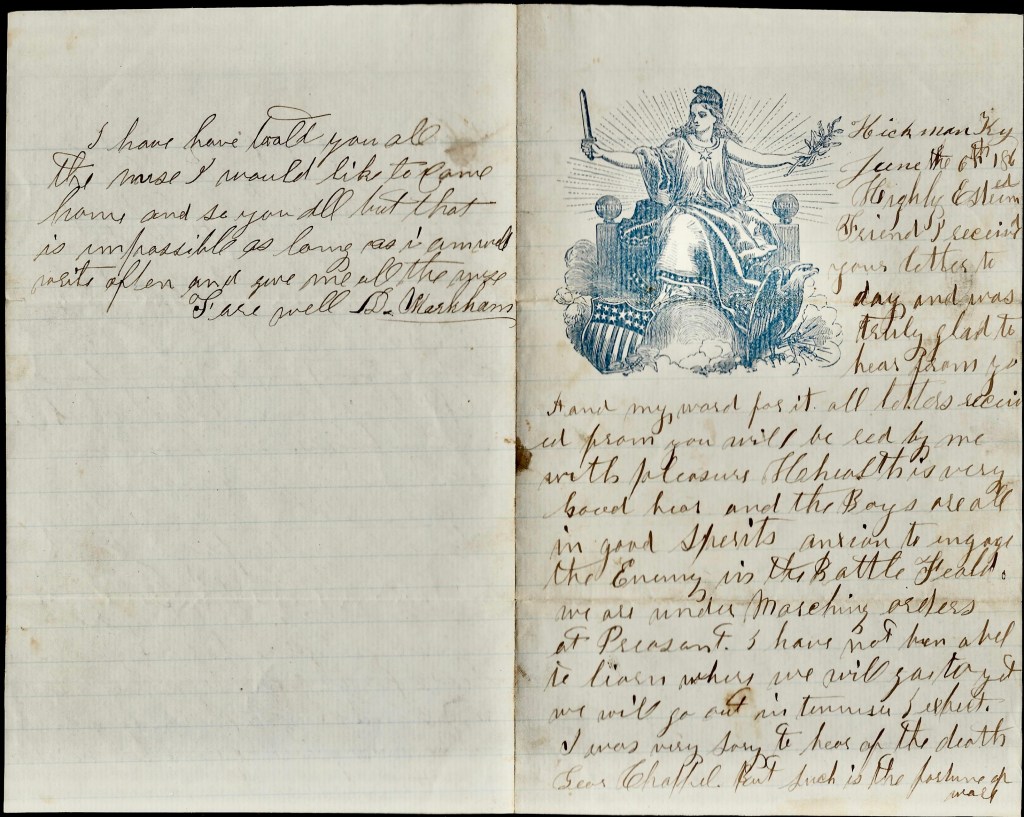 I have have toald you all
the nuse I would like to Come
home and se you all but that
is impossible as long as i am well
write often and give me all the nuse
Fare well D. Markham
Hickman Ky
June the 6th 186
Highly Esteemed
Friend I receivd
your letter to
day and was
truly glad to
hear from yo
and my word for it all letters receiv
ed from you will be red by me
with pleasure Helhealth is very
Good hear and the Boys are all
in good Sperits anxion to engage
the Enemy in the Battle Feald.
we are under Marching orders
at Preasant. I have not ben abel
to liarn where we will go to yet
we will go out in tennisee I expect.
I was very sory to hear of the death
Geor Chappel. But such is the fortune of
warr